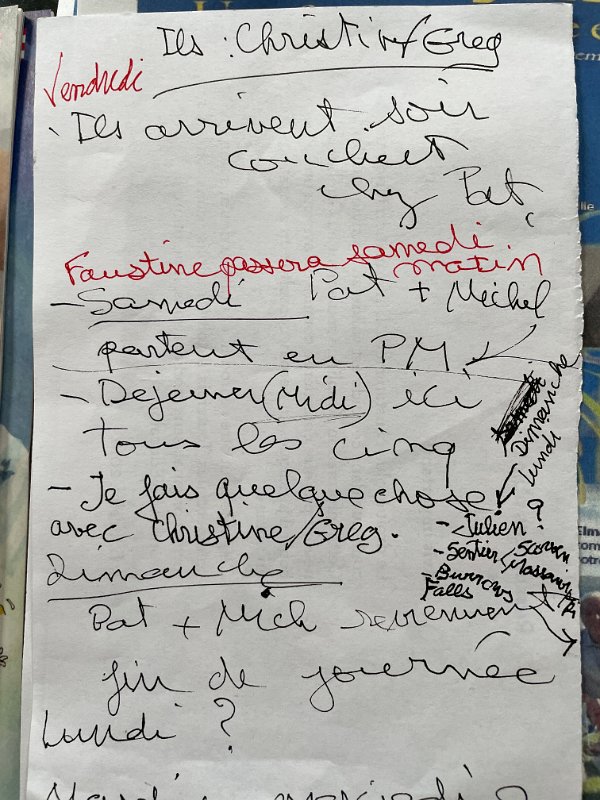 Ils : Christin/Greg
Vendredi
Ils arrivent soir
couchent
chez Pat
Faustine passera samedi
matin
- Samedi Pat + Michel
partent en PM
- Dejeuner (Midi) ici
tous les cinq
Dimanche
lundi
- Je fais quelque chose
avec Christine/Greg.
- Julien ?
- Sentier
- Burrows
Falls
Dimanche
Pat + Mich reviennent
fin de journée
Lundi ?